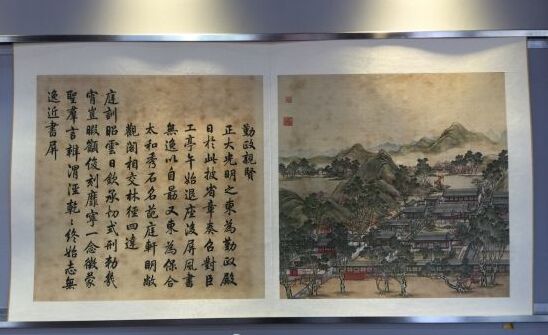 勤政親賢
正大光明之東為勤政殿
日於此披省章奏召對臣
工亭午始退座後屏風書
無逸以自勗又東為保合
太和秀石名葩庭軒明敞
觀閣相交林徑四達
庭訓昭雲日欽承切式刑勅幾
宵豈暇顧俊刻靡寧一念徵蒙
聖羣言辨渭涇乾〻終始志無
逸近書屏